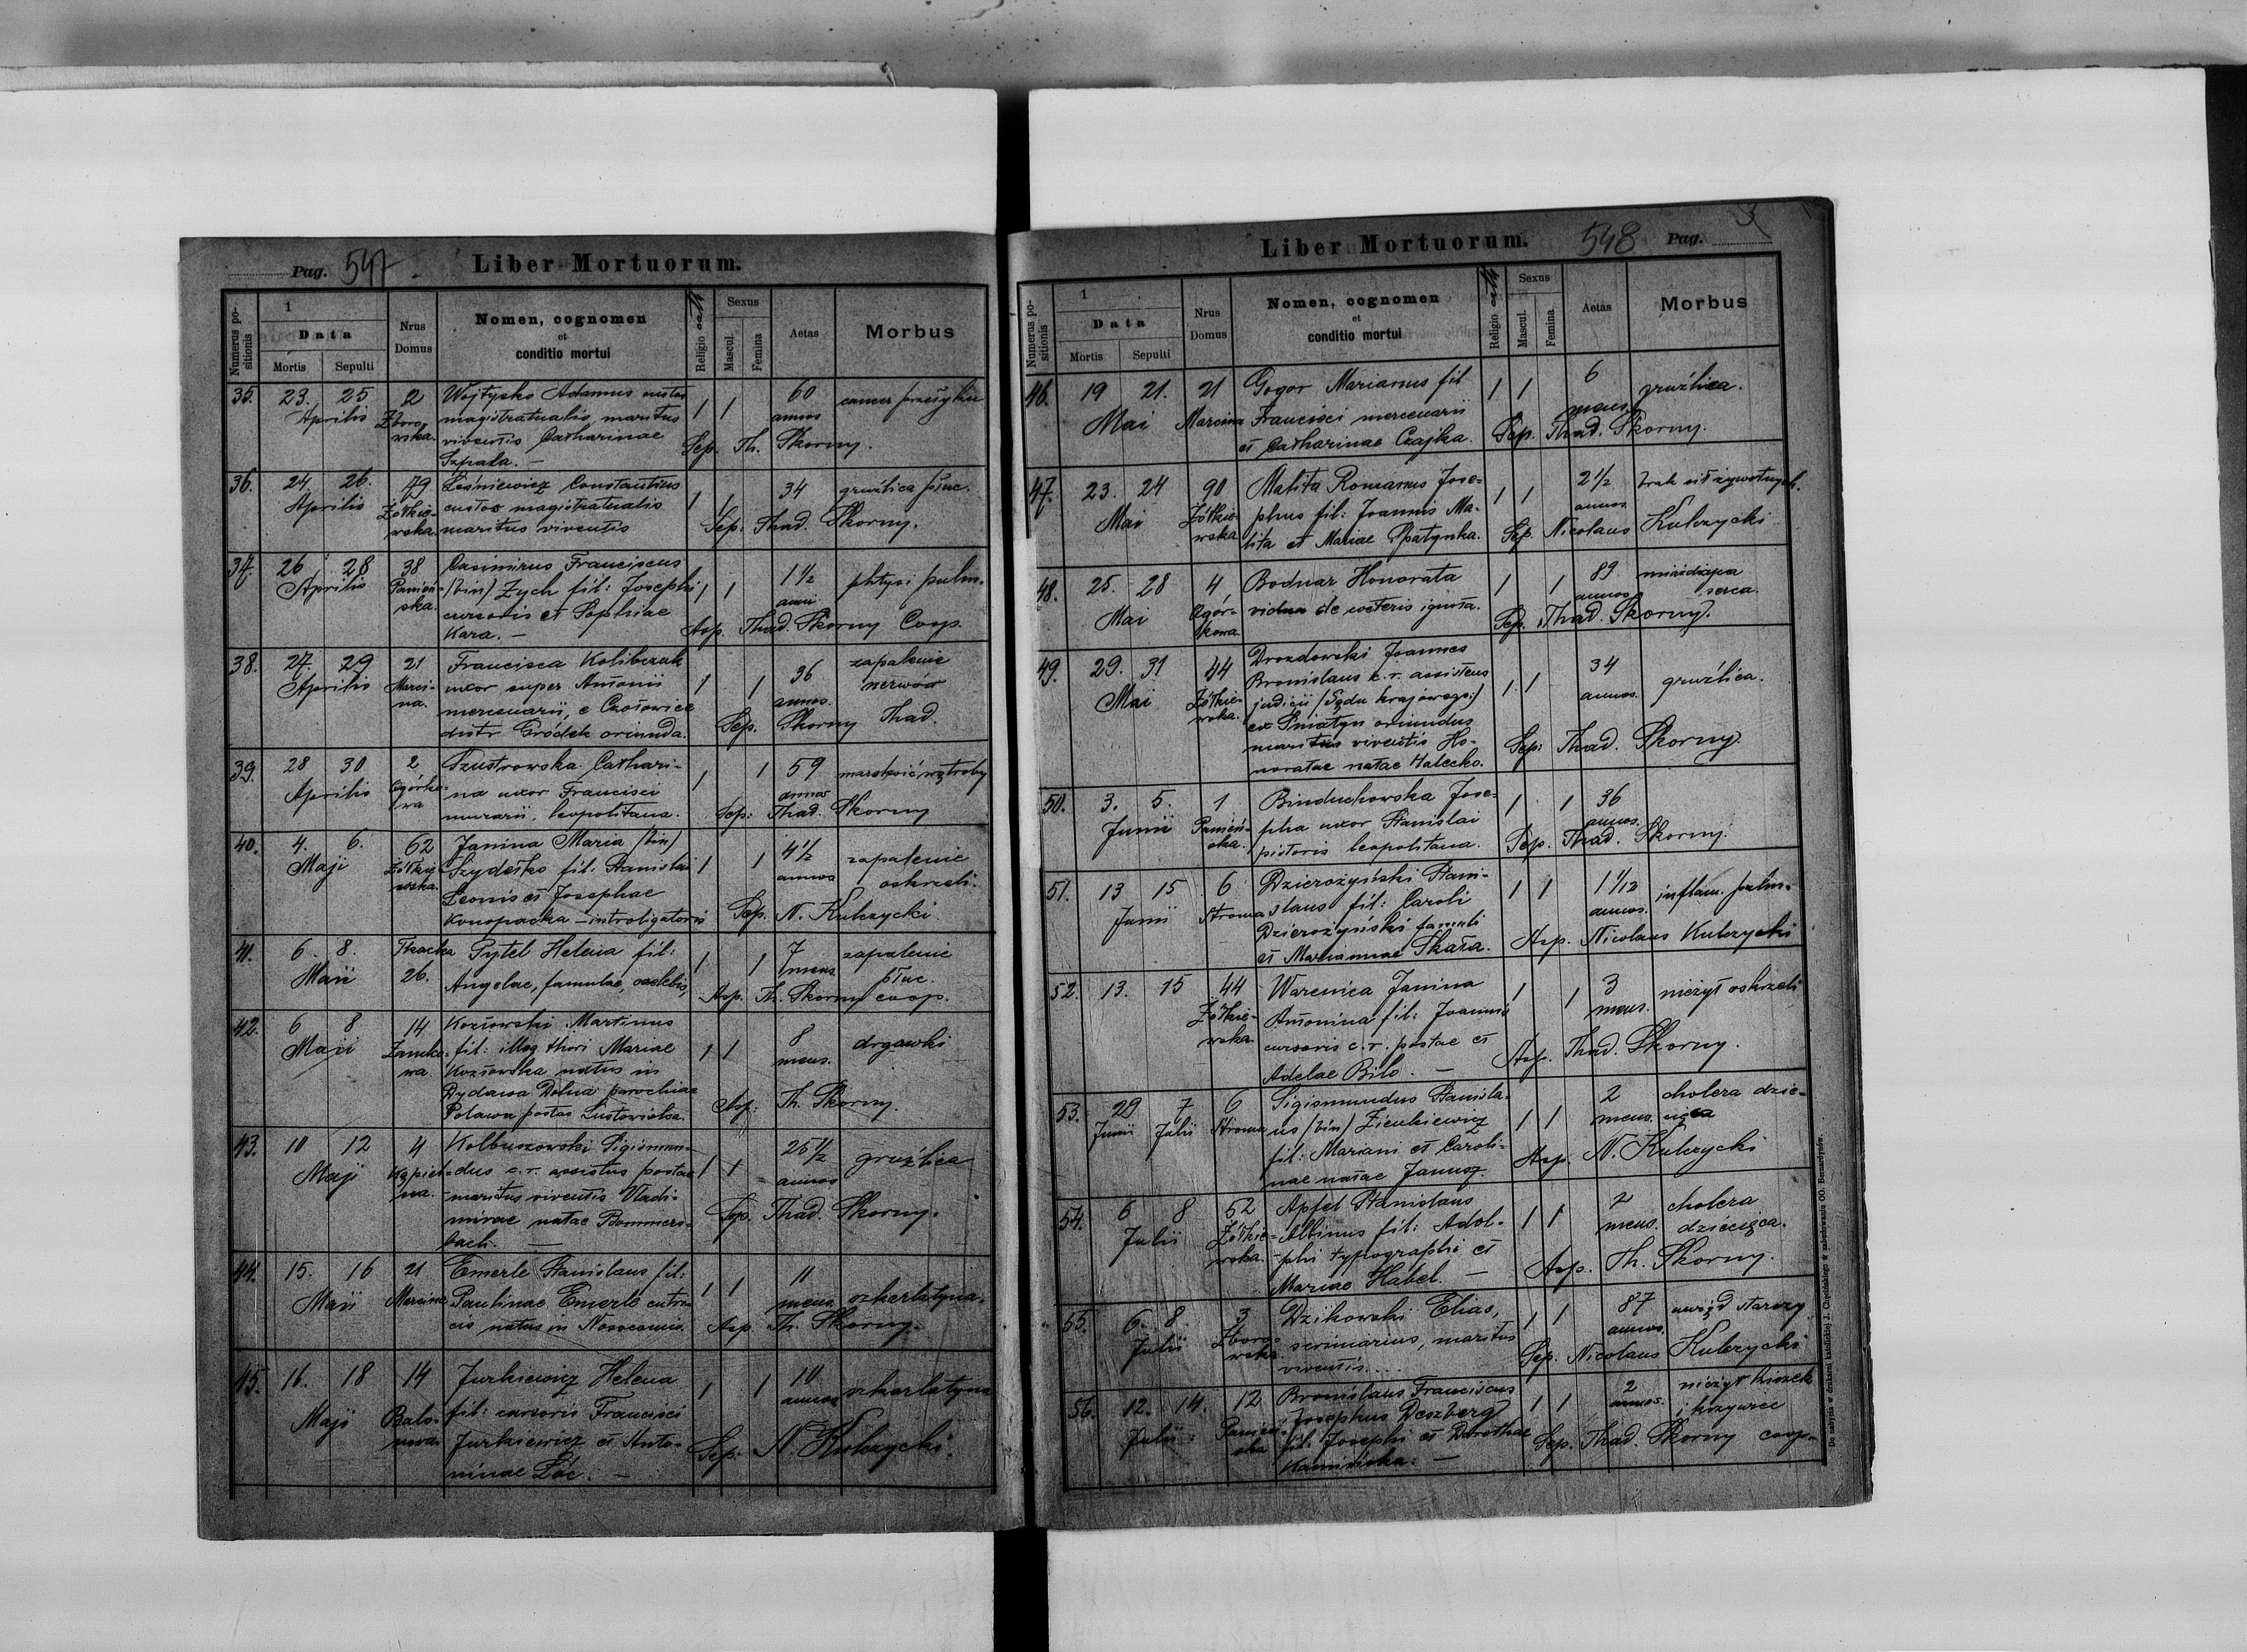 Pag. 547. Liber Mortuorum.
Numerus positionis
1
Data
Mortis Sepulti
Nrus Domus
Nomen, cognomen
et
conditio mortui
Religio cath
Sexus
Mascul. Femina
Aetas
Morbus
35. 23. 25 2 Wojtysko Adamus custos 60 cancer
Aprilis Zboro- magistratualis maritus 1 1 annos
wska. viventis Catharinae Sep. Th. Skorny.
Szpada. —
36. 24. 26. 79 Leśniewicz Constantinus 34 gruźlica płuc.
Aprilis Żółkie- custos magistratualis 1 1
wska. maritus viventis Sep. Thad. Skorny.
37. 26 28 38 Casimirus Franciscus 1½ phtysi pulm.
Aprilis Panień- (bin) Zych fil: Josephi 1 1 anni
ska. cursoris et Sophiae Asp. Thad. Skorny Coop.
Kara. —
38. 27. 29 21 Francisca Kolibczuk 36 zapalenie
Aprilis Marci- uxor super Antonii 1 1 nerwów
na. mercenarii, e annos.
distr Gródek oriunda. Sep. Skorny Thad.
39. 28 30 2 Szustrowska Cathari- 1 1 59 marskość wątroby
Aprilis Ogórko- na uxor Francisci annos
wa murarii, leopolitana. Sep: Thad. Skorny
40. 4. 6. 62 Janina Maria (bin) 4½ zapalenie
Maji Żółkie- Szydełko fil: Stanislai 1 1 annos oskrzeli.
wska. Leonis et Josephae
Konopacka — introligatoris Sep. N. Kulczycki
41. 6. 8. Tkacka Pytel Helena fil: 1 1 7 zapalenie
Maii 26. Angelae, famulae, caelebis, mens. płuc.
Asp. Th. Skorny coop.
42. 6 8 14 Kozłowski Martinus 8 drgawki
Maji Zamko- fil: illeg thori Mariae 1 1 mens.
wa. Kozłowska natus in
Dydawa Dolna parochiae
Asp: Th. Skorny.
43. 10 12 4 Kolbuszowski Sigismun- 25½ gruźlica
Maji Kąpiel- dus c. r. assistus postae 1 1 annos
na. maritus viventis Vladi-
mirae natae Bommers- Sep. Thad. Skorny.
bach. —
44. 15. 16 21 Emerle Stanislaus fil: 1 1 11 szkarlatyna.
Maii Marcina Paulinae Emerle mens.
natus in Asp. Th. Skorny.
45. 16. 18 14 Jurkiewicz Helena 1 1 10 szkarlatyna
Maji Balo- fil: cursoris Francisci annos
nowa. Jurkiewicz et Anto-
ninae Żóc. — Sep. N. Kulczycki.
Liber Mortuorum. 548 Pag.
Numerus positionis
1
Data
Mortis Sepulti
Nrus Domus
Nomen, cognomen
et
conditio mortui
Religio cath
Sexus
Mascul. Femina
Aetas
Morbus
46. 19 21. 21 Gogor Marianus fil 1 1 6 gruźlica.
Mai Marcina Francisci mercenarii mens.
et Catharinae Czajka. Sep. Thad. Skorny.
47. 23. 24 90 Malita Romanus Jose- 1 1 2½ brak sił żywotnych.
Mai Żółkie- phus fil: Joannis Ma- annos
wska lita et Mariae Spatynka. Sep. Nicolaus Kulczycki
48. 25. 28 4 Bodnar Honorata 1 1 89 miażdżyca
Mai Ogór- vidua de ceteris ignota. annos serca.
kowa Sep. Thad. Skorny.
49. 29. 31 44 Drozdowski Joannes 34
Mai Żółkie- Bronislaus c. r. assistens 1 1 annos. gruźlica.
wska. judicii (Sądu krajowego:)
ex Śniatyn oriundus
maritus viventis Ho- Sep: Thad. Skorny.
noratae natae Halecko.
50. 3. 5. 1 Binduchowska Jose- 1 1 36
Junii Panień- pha uxor Stanislai annos.
ska. pistoris leopolitana. Sep. Thad. Skorny.
51. 13 15 6 Dzierożyński Stani- 1 1 1 1/12 inflam. pulm.
Junii Stroma slaus fil: Caroli annos.
Dzierożyński famuli
et Mariannae Skała. Asp. Nicolaus Kulczycki
52. 13. 15 44 Warenica Janina 1 1 3 nieżyt oskrzeli
Żółkie- Antonina fil: Joannis mens.
wska cursoris c. r. postae et
Adelae Bilo. — Asp. Thad. Skorny.
53. 29 7 6 Sigismundus Stanisla- 1 1 2 cholera dzie-
Junii Julii Stroma us (bin) Zienkiewicz mens. cięca
fil: Mariani et Caroli-
nae natae Janusz. Asp. N. Kulczycki
54. 6 8 52 Apfel Stanislaus 1 1 2 cholera
Julii Żółkie- Albinus fil: Adol- mens. dziecięca.
wska. phi typographi et
Mariae Habel. — Asp. Th. Skorny.
55. 6. 8. 3 Dzikowski Elias, 1 1 87 uwiąd starczy
Julii Zboro- scriniarius, maritus annos.
wska viventis... Sep. Nicolaus Kulczycki
56. 12. 14. 12 Bronislaus Franciscus 1 1 2 nieżyt kiszek
Julii Panień- Josephus Deszberg annos. i krzywice
ska fil: Josephi et Dorothae
Kamińska. — Sep. Thad. Skorny coop.
Do nabycia w drukarni katolickiej J. Chęcińskiego w zabudowaniu OO. Bernardynów.